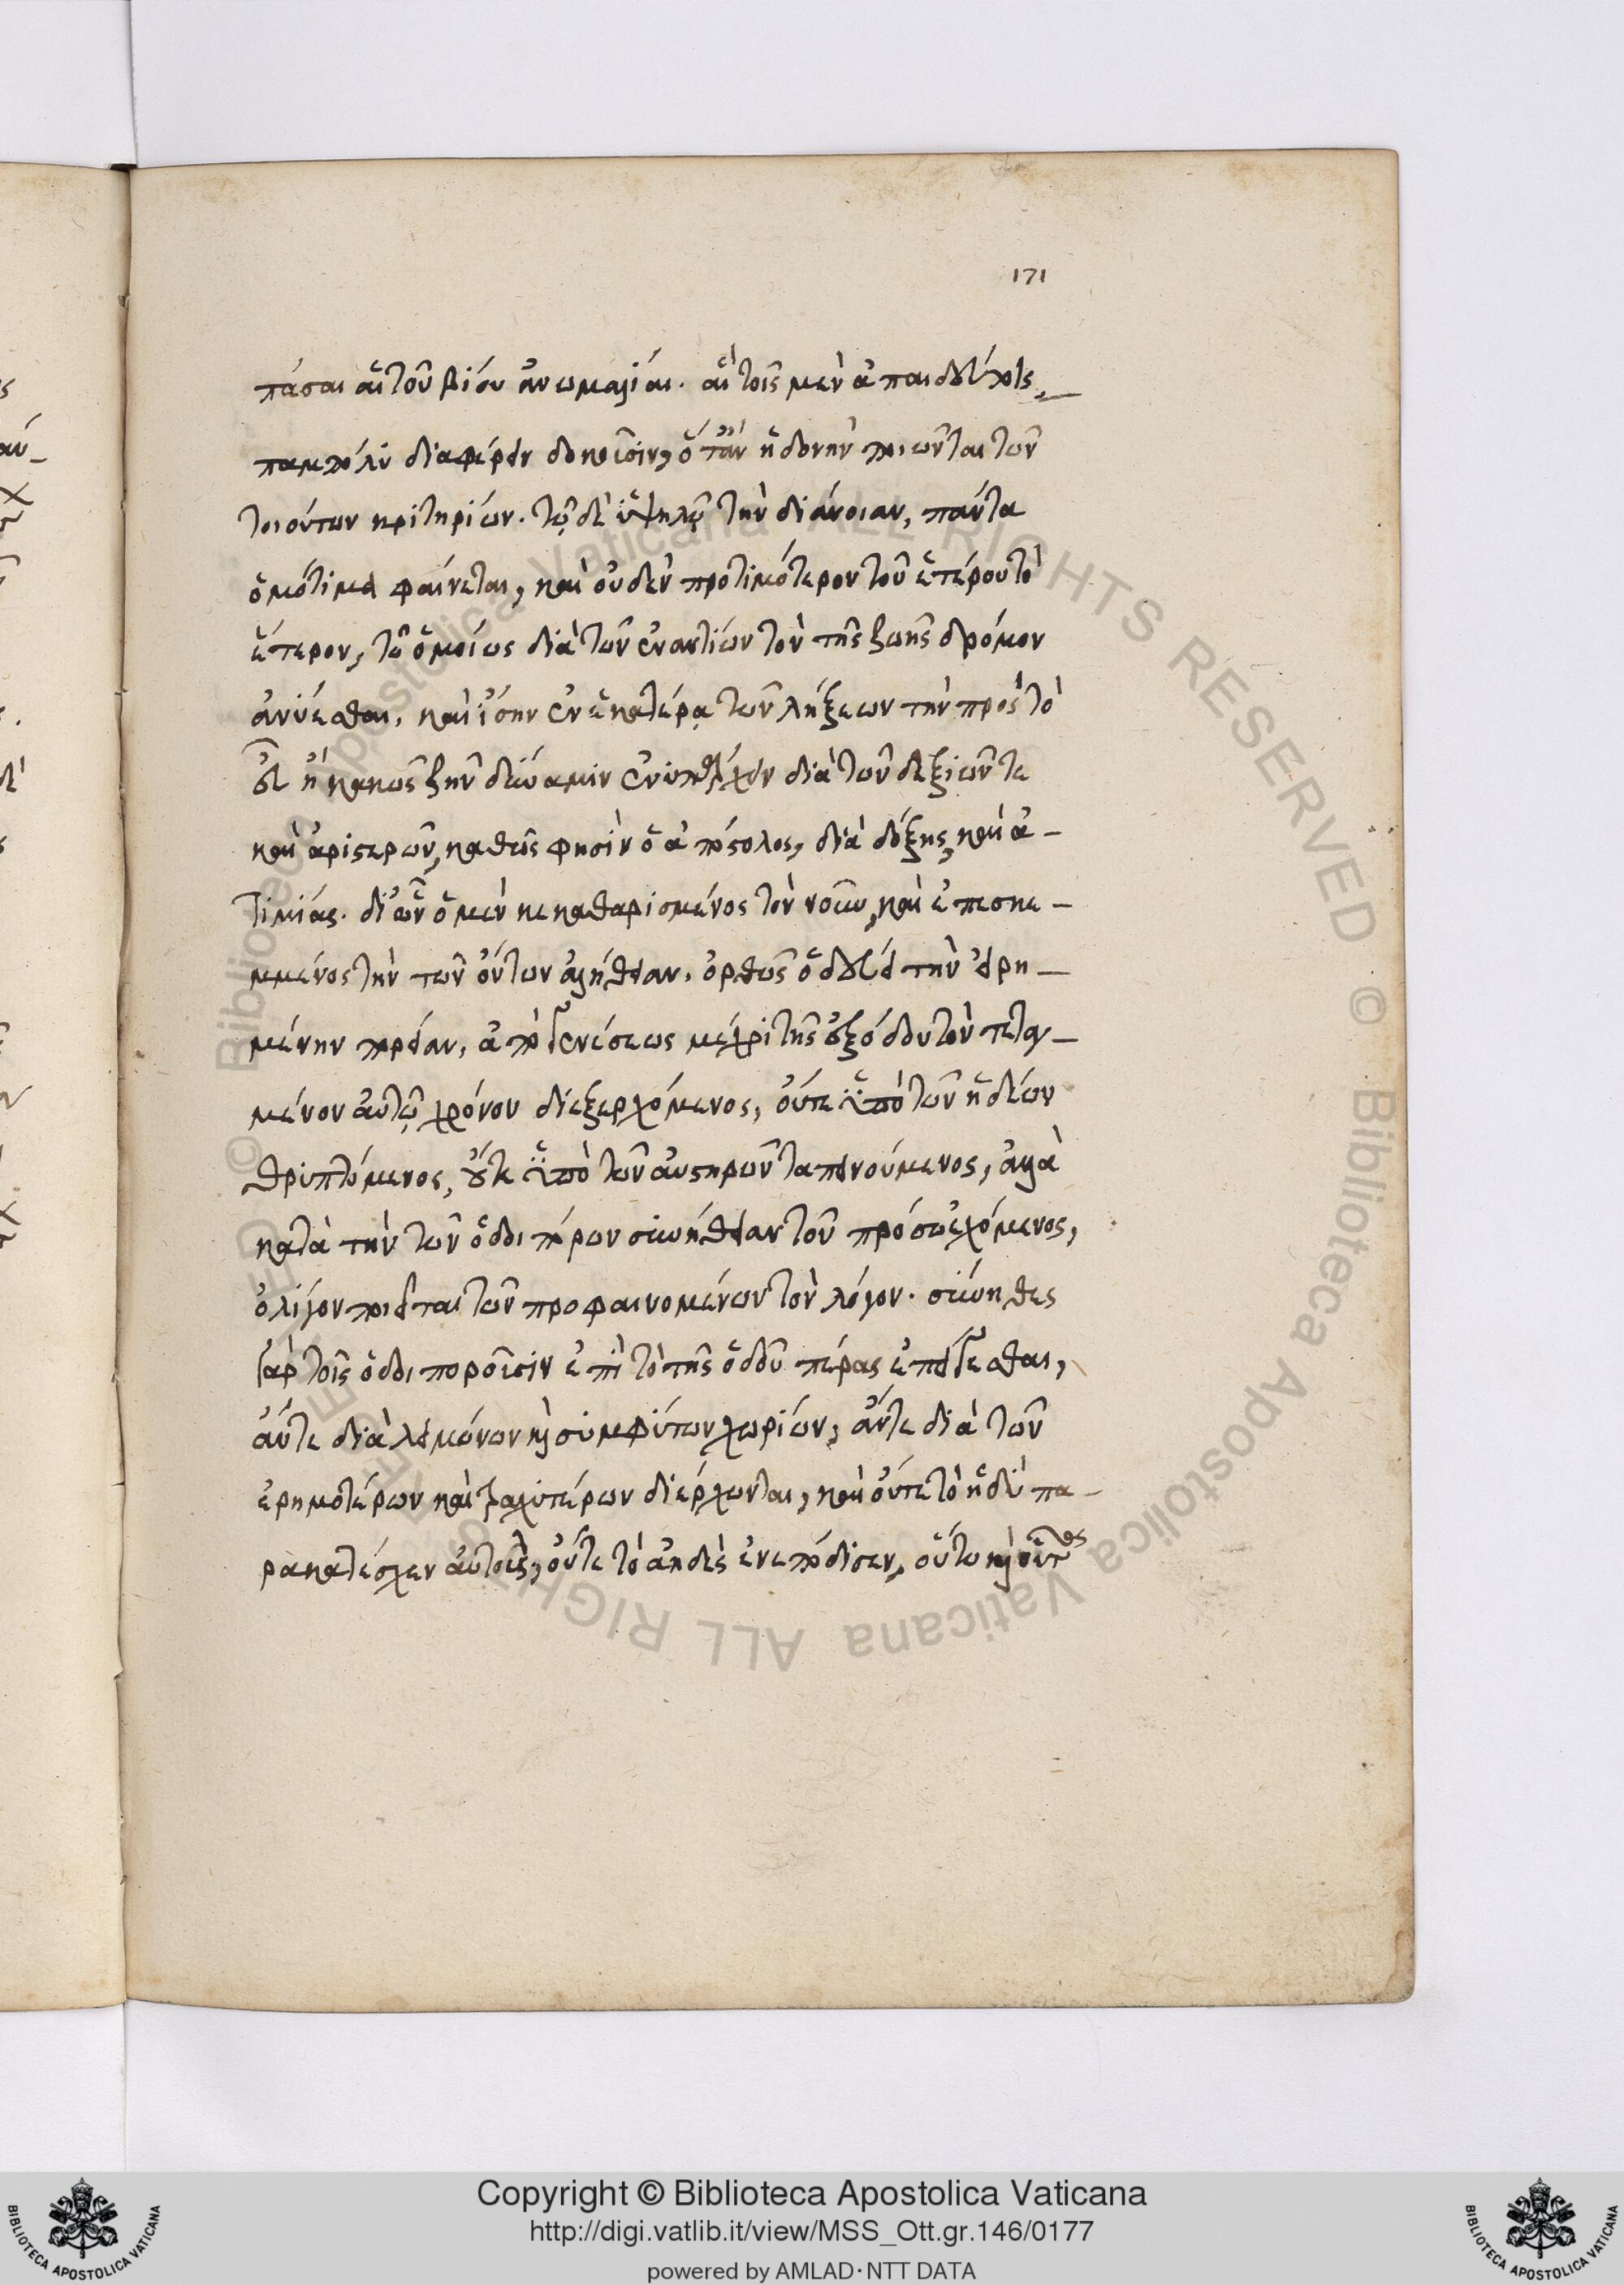 171
πάσαι αἱ τοῦ βίου ἀνωμαλίαι. αἳ τοῖς μὲν ἀπαιδεύτοις
παμπόλυ διαφέρειν δοκοῦσιν, ὅταν ἡδονὴν ποιῶνται τῶν
τοιούτων κριτηρίων. τῷ δὲ ὑψηλῷ τὴν διάνοιαν, πάντα
ὁμότιμα φαίνεται, καὶ οὐδὲν προτιμότερον τοῦ ἑτέρου τὸ
ἕτερον, τῷ ὁμοίως διὰ τῶν ἐναντίων τὸν τῆς ζωῆς δρόμον
ἀνύεσθαι, καὶ ἴσην ἐν ἑκατέρᾳ τῶν λήξεων τὴν πρὸς τὸ
εὖ ἢ κακῶς ζῆν δύναμιν ἐνυπάρχειν διὰ τῶν δεξιῶν τε
καὶ ἀριστερῶν, καθώς φησὶν ὁ ἀπόστολος, διὰ δόξης, καὶ ἀ-
τιμίας. δι' ὧν ὁ μὲν κεκαθαρισμένος τὸν νοῦν, καὶ ἐπεσκε-
μμένος τὴν τῶν ὄντων ἀλήθειαν, ὀρθῶς ὁδεύει τὴν εἰρη-
μένην πορείαν, ἀπὸ γενέσεως μέχρι τῆς ἐξόδου τὸν τεταγ-
μένον αὐτῷ χρόνον διεξερχόμενος, οὔτε ὑπὸ τῶν ἡδέων
θρυπτόμενος, οὔτε ὑπὸ τῶν αὐστηρῶν ταπεινούμενος, ἀλλὰ
κατὰ τὴν τῶν ὁδοιπόρων συνήθειαν τοῦ πρόσω ἐχόμενος,
ὀλίγον ποιεῖται τῶν προφαινομένων τὸν λόγον. σύνηθες
γὰρ τοῖς ὁδοιποροῦσιν ἐπὶ τὸ τῆς ὁδοῦ πέρας ἐπείγεσθαι,
ἄντε διὰ λειμώνων καὶ συμφύτων χωρίων, ἄντε διὰ τῶν
ἐρημοτέρων καὶ τραχυτέρων διέρχωνται, καὶ οὔτε τὸ ἡδὺ πα-
ρακατέσχεν αὐτοὺς, οὔτε τὸ ἀηδὲς ἐνεπόδισεν, οὕτω καὶ
Copyright © Biblioteca Apostolica Vaticana
http://digi.vatlib.it/view/MSS_Ott.gr.146/0177
powered by AMLAD·NTT DATA